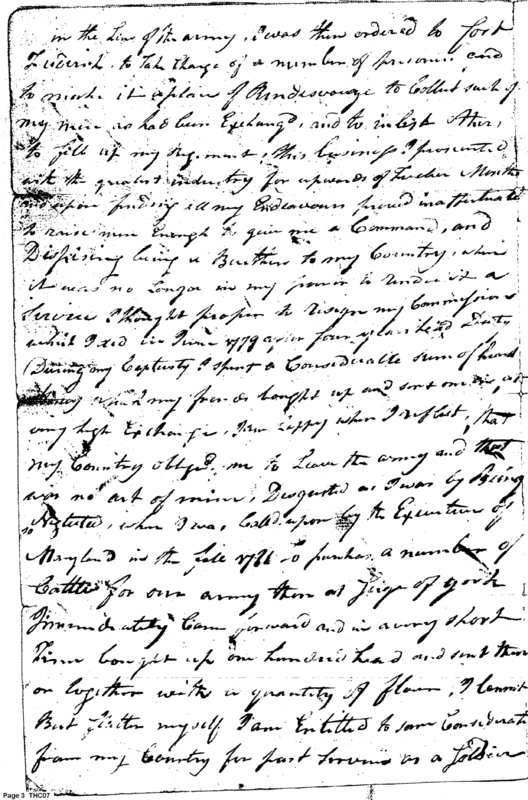 in the Line of the army, I was then ordered to fort
Frederick to take Charge of a number of prisoners and
to make it a place of Rendesvouze to Collect such of
my men as had been Exchangd, and to inlist other,
to fill up my Regiment, this business I prosecuted
with the greatest industry for upwards of Twelve Months
upon finding all my Endeavours proved
to raise men Enough to give me a Command, and
Dispising being a Burthen to my Country, when
it was no Longer in my power to render it a
Service I thought proper to resign my Commission
which I did in June 1779 after four years hard Duty
During my Captivity I spent a Considerable sum of hard
money which my friends bought up and sent me in, at
very high Exchange, I am happy when I reflect, that
my Country obliged me to Leave the army and that
was no act of mine, Disgusted as I was by Being
so Neglected, when I was Called upon by the Executive of
Maryland in the fall 1781 to purchas a number of
Cattle for our army then at Seige of york
Immediately Came forward and in a very short
Time bought up one hundred head and sent them
on together with a quantity of flour, I Cannot
But flatter myself I am Entitled to some Considerati
from my Country for past Services as a Soldier
Page 3 THC07